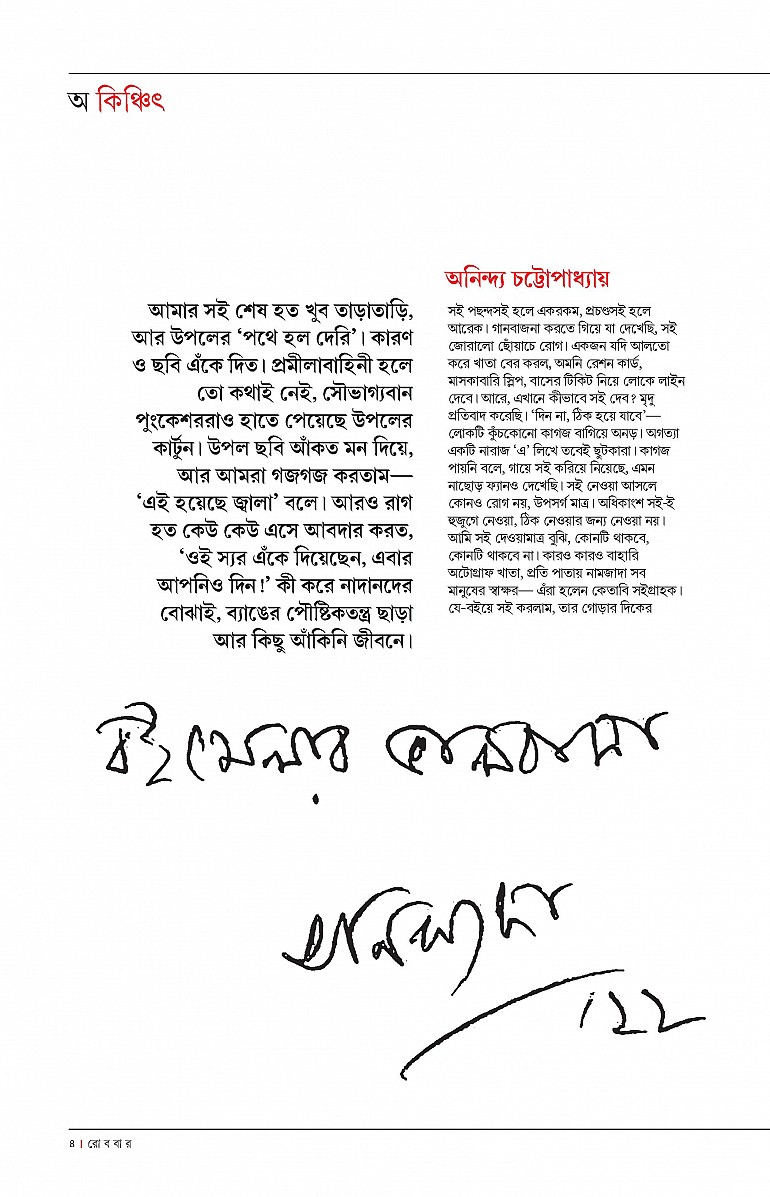 অ কিঞ্চিৎ
আমার সই শেষ হত খুব তাড়াতাড়ি,
আর উপলের ‘পথে হল দেরি’। কারণ
ও ছবি এঁকে দিত। প্রমীলাবাহিনী হলে
তো কথাই নেই, সৌভাগ্যবান
পুংকেশররাও হাতে পেয়েছে উপলের
কার্টুন। উপল ছবি আঁকত মন দিয়ে,
আর আমরা গজগজ করতাম—
‘এই হয়েছে জ্বালা’ বলে। আরও রাগ
হত কেউ কেউ এসে আবদার করত,
‘ওই স্যর এঁকে দিয়েছেন, এবার
আপনিও দিন!’ কী করে নাদানদের
বোঝাই, ব্যাঙের পৌষ্টিকতন্ত্র ছাড়া
আর কিছু আঁকিনি জীবনে।
অনিন্দ্য চট্টোপাধ্যায়
সই পছন্দসই হলে একরকম, প্রচণ্ডসই হলে
আরেক। গানবাজনা করতে গিয়ে যা দেখেছি, সই
জোরালো ছোঁয়াচে রোগ। একজন যদি আলতো
করে খাতা বের করল, অমনি রেশন কার্ড,
মাসকাবারি স্লিপ, বাসের টিকিট নিয়ে লোকে লাইন
দেবে। আরে, এখানে কীভাবে সই দেব? মৃদু
প্রতিবাদ করেছি। ‘দিন না, ঠিক হয়ে যাবে’—
লোকটি কুঁচকোনো কাগজ বাগিয়ে অনড়। অগত্যা
একটি নারাজ ‘এ’ লিখে তবেই ছুটকারা। কাগজ
পায়নি বলে, গায়ে সই করিয়ে নিয়েছে, এমন
নাছোড় ফ্যানও দেখেছি। সই নেওয়া আসলে
কোনও রোগ নয়, উপসর্গ মাত্র। অধিকাংশ সই-ই
হুজুগে নেওয়া, ঠিক নেওয়ার জন্য নেওয়া নয়।
আমি সই দেওয়ামাত্র বুঝি, কোনটি থাকবে,
কোনটি থাকবে না। কারও কারও বাহারি
অটোগ্রাফ খাতা, প্রতি পাতায় নামজাদা সব
মানুষের স্বাক্ষর— এঁরা হলেন কেতাবি সইগ্রাহক।
যে-বইয়ে সই করলাম, তার গোড়ার দিকের
বইমেলার ভালবাসা
অনিন্দ্যদা
৪ । রোববার